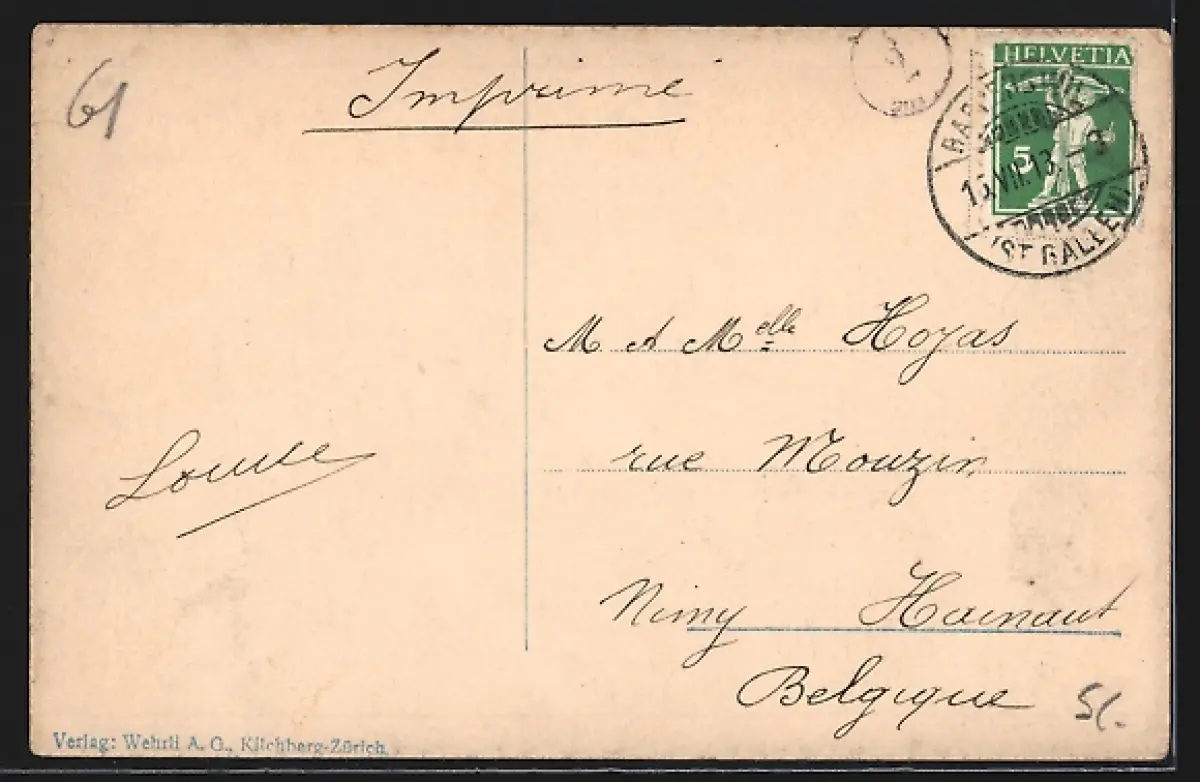 61
Imprimé
HELVETIA
5
15.VII.13.-3
(ST. GALLEN)
M A Melle Hoyas
rue Mouzin
Louise
Nimy Hainaut
Belgique
5/.-
Verlag: Wehrli A. G., Kilchberg-Zürich.